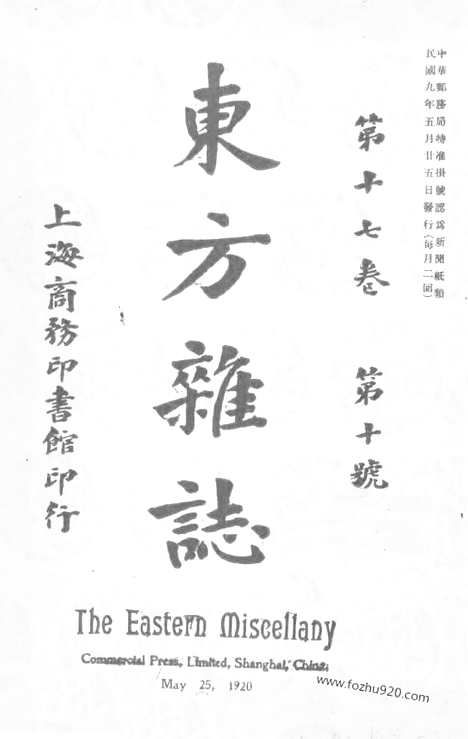 中華郵務局特准掛號認爲新聞紙類
民國九年五月廿五日發行(每月二回)
第十七卷 第十號
東方雜誌
上海商務印書館印行
The Eastern Miscellany
Commercial Press, Limited, Shanghai, China.
May 25, 1920
www.fozhu920.com